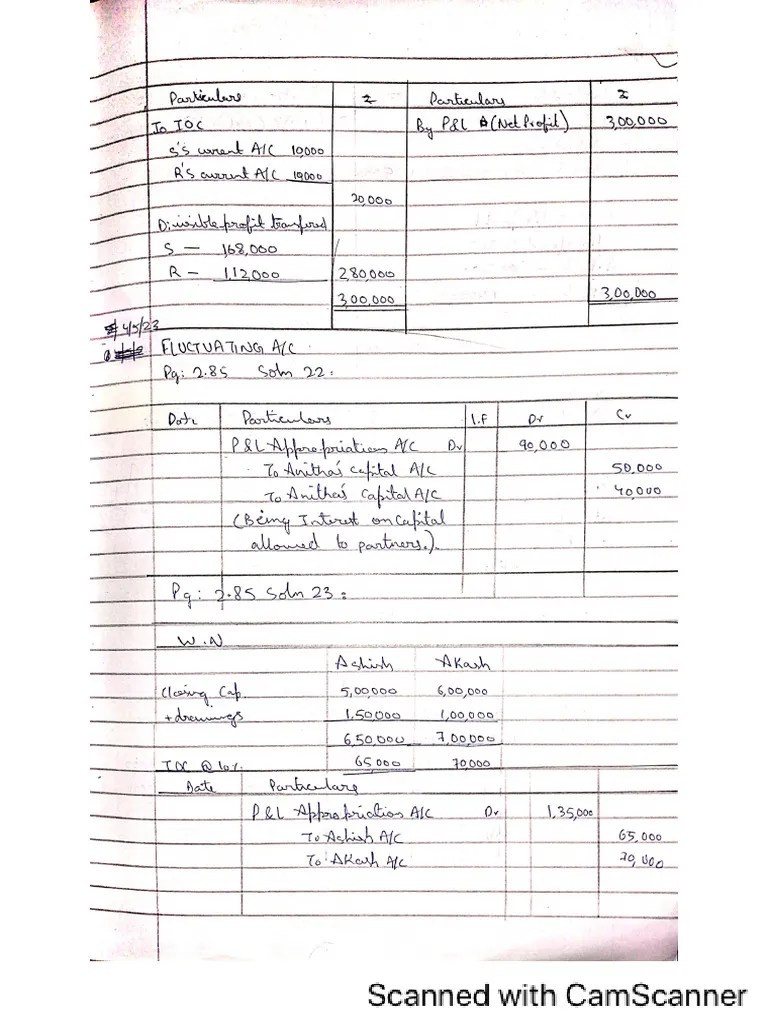 Particulars ₹ Particulars ₹
To IOC By P&L A (Net Profit) 3,00,000
S's current A/C 10,000
R's current A/C 10,000
20,000
Divisible profit transfered
S — 1,68,000
R — 1,12,000 280,000
3,00,000 3,00,000
4/5/23
FLUCTUATING A/C
Pg: 2.85 Soln 22:
Date Particulars L.F Dr Cr
P&L Appropriation A/C Dr 90,000
To Anitha's capital A/C 50,000
To Anitha's capital A/C 40,000
(Being Interest on capital
allowed to partners.)
Pg: 2.85 Soln 23:
W.N
Ashish Akash
Closing Cap. 5,00,000 6,00,000
+ drawings 1,50,000 1,00,000
6,50,000 7,00,000
IOC @ 10%. 65,000 70,000
Date Particulars
P&L Appropriation A/C Dr 1,35,000
To Ashish A/C 65,000
To Akash A/C 70,000
Scanned with CamScanner